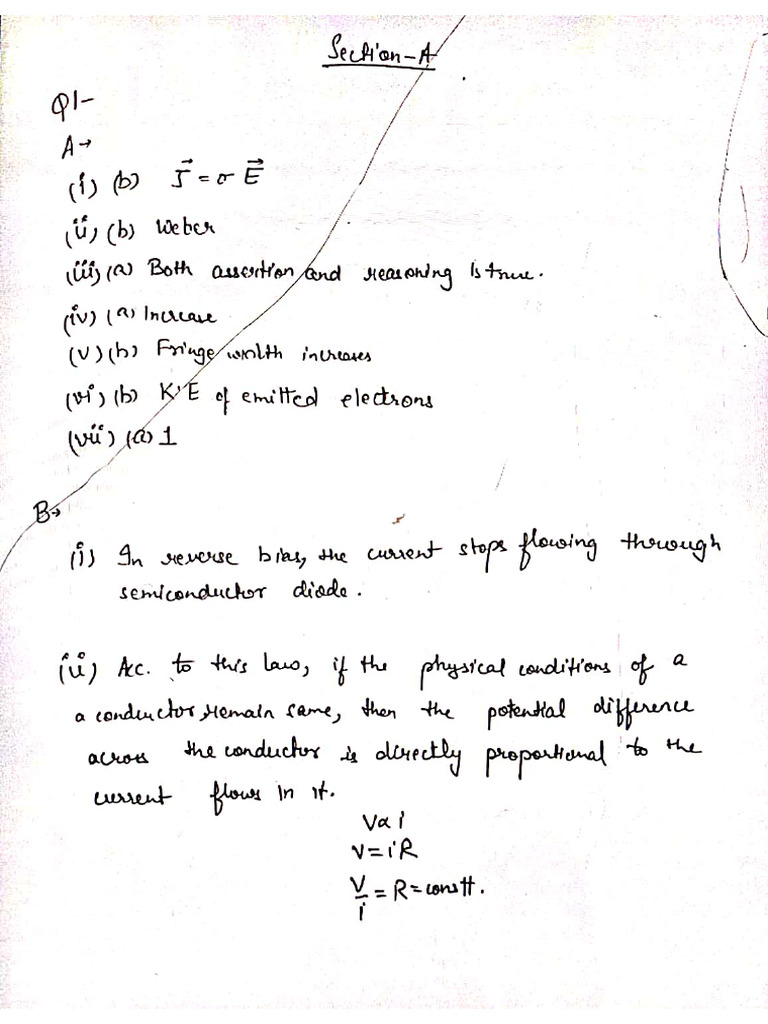 Section-A
Q1-
A→
(i) (b) J⃗ = σ E⃗
(ii) (b) Weber
(iii) (a) Both assertion and reasoning is true.
(iv) (a) Increase
(v) (b) Fringe width increases
(vi) (b) K.E of emitted electrons
(vii) (a) 1
B→
(i) In reverse bias, the current stops flowing through
semiconductor diode.
(ii) Acc. to this law, if the physical conditions of a
a conductor remain same, then the potential difference
across the conductor is directly proportional to the
current flows in it.
V∝i
V=iR
V/i = R = constt.